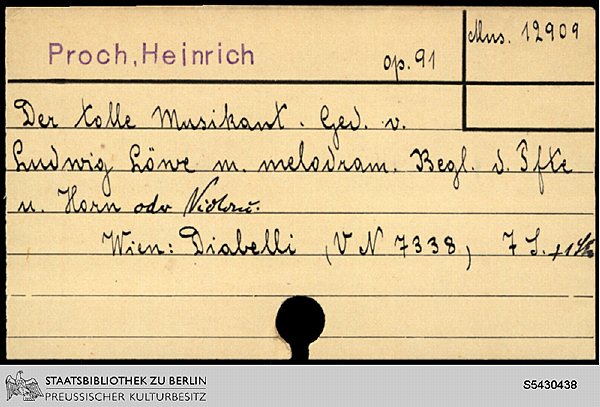 Mus. 12909
Proch, Heinrich op. 91
Der tolle Musikant. Ged. v.
Ludwig Löwe m. melodram. Begl. d. Pfte
u. Horn oder Violonc.
Wien: Diabelli (V N 7338) 7 S.
STAATSBIBLIOTHEK ZU BERLIN
PREUSSISCHER KULTURBESITZ
S5430438